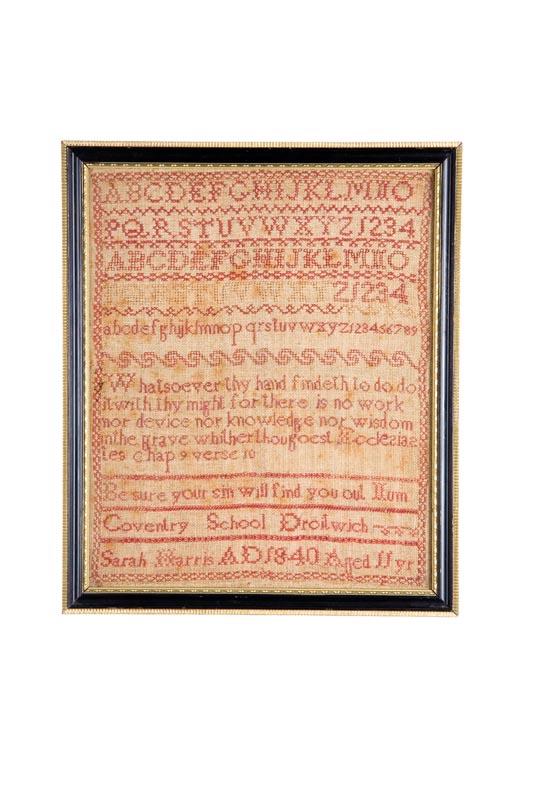 ABCDEFGHIJKLMNO
PQRSTUVWXYZ1234
ABCDEFGHIJKLMNO
Z1234
abcdefghijklmnopqrstuvwxyz123456789
Whatsoever thy hand findeth to do do
it with thy might for there is no work
nor device nor knowledge nor wisdom
in the grave whither thou goest Ecclesias
tes Chap 9 verse 10
Be sure your sin will find you out Num
Coventry School Droitwich
Sarah Harris AD 1840 Aged 11 yr